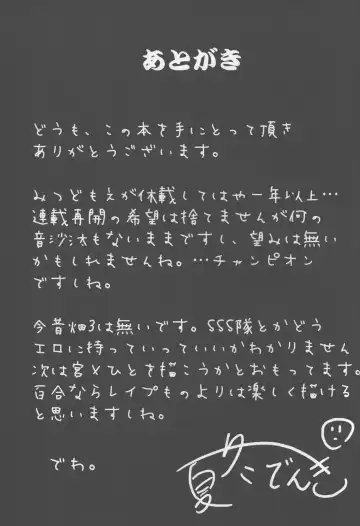 あとがき
どうも、この本を手にとって頂き
ありがとうございます。
みつどもえが休載してはや一年以上…
連載再開の希望は捨てませんが何の
音沙汰もないままですし、望みは無い
かもしれませんね。…チャンピオン
ですしね。
今昔畑3は無いです。SSS隊とかどう
エロに持っていっていいかわかりません
次は宮×ひとを描こうかとおもってます。
百合ならレイプものよりは楽しく描ける
と思いますしね。
でわ。
夏りこでんき